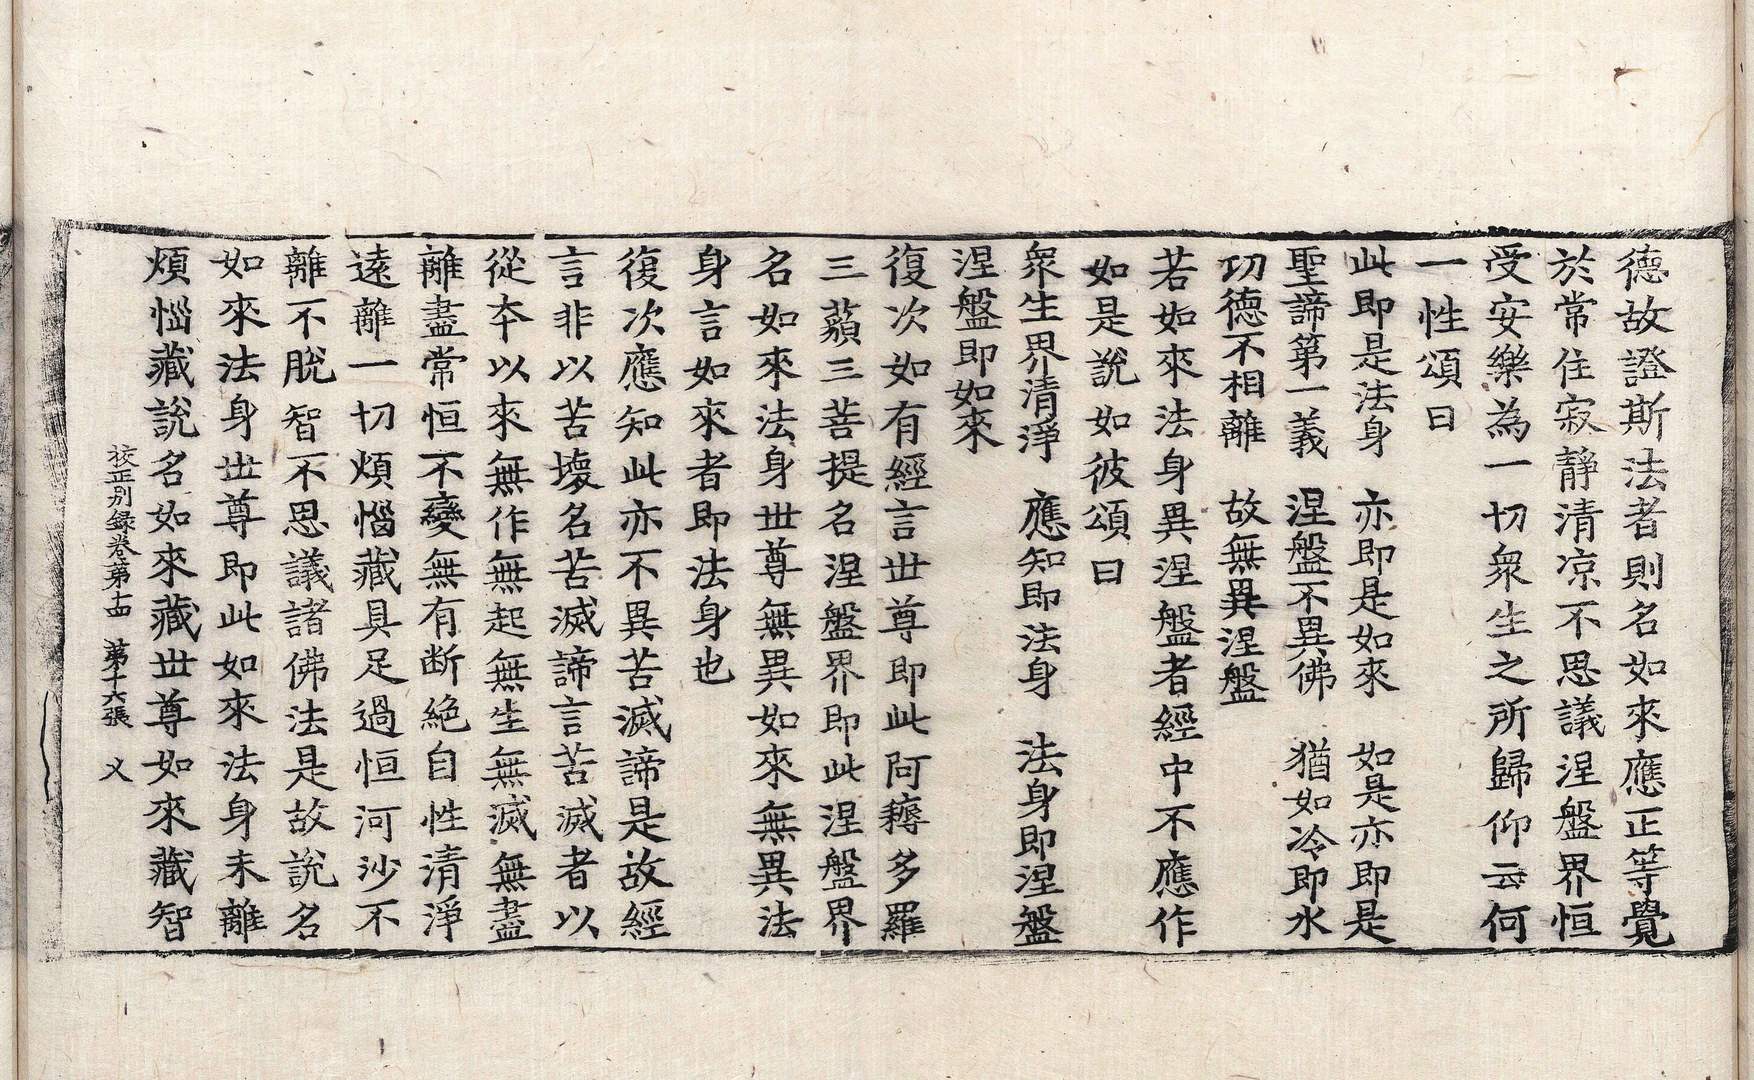 德故證斯法者則名如來應正等覺
於常住寂靜清凉不思議涅盤界恒
受安樂為一切衆生之所歸仰云何
一性頌曰
此即是法身　亦即是如來　如是亦即是
聖諦第一義　涅盤不異佛　猶如冷即水
功德不相離　故無異涅盤
若如來法身異涅盤者經中不應作
如是說如彼頌曰
衆生界清淨　應知即法身　法身即涅盤
涅盤即如來
復次如有經言世尊即此阿耨多羅
三藐三菩提名涅盤界即此涅盤界
名如來法身世尊無異如來無異法
身言如來者即法身也
復次應知此亦不異苦滅諦是故經
言非以苦壞名苦滅諦言苦滅者以
從本以來無作無起無生無滅無盡
離盡常恒不變無有断絶自性清淨
遠離一切煩惱藏具足過恒河沙不
離不脫智不思議諸佛法是故說名
如來法身世尊即此如來法身未離
煩惱藏說名如來藏世尊如來藏智
校正別録卷第十四　第十六張　乂